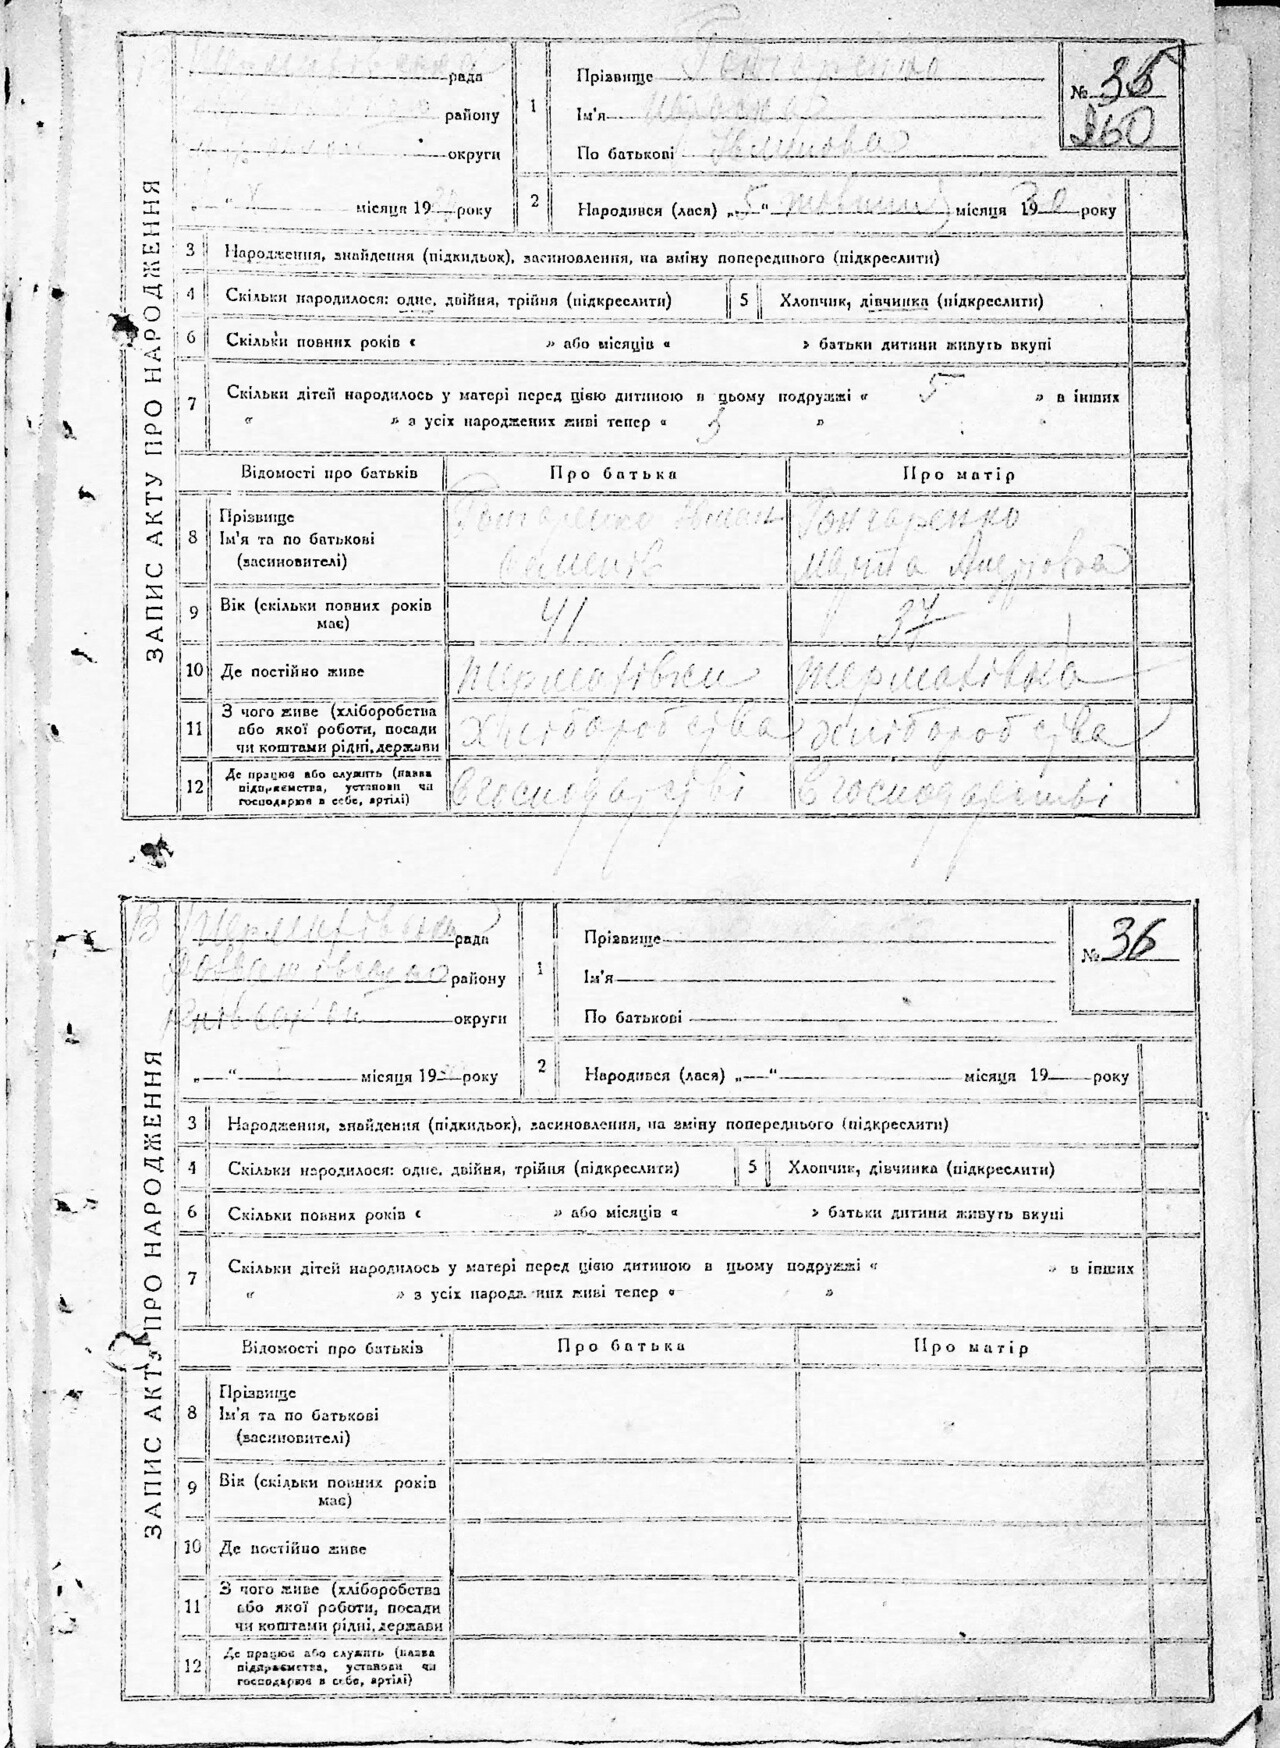 ЗАПИС АКТУ ПРО НАРОДЖЕННЯ
рада
району
округи
„ “ V місяця 19 року
1
Прізвище Гончаренко
Ім'я
По батькові
№ 35
260
2
Народився (лася) „5“ місяця 1930 року
3 Народження, знайдення (підкидьок), засиновлення, на зміну попереднього (підкреслити)
4 Скільки народилося: одне, двійня, трійня (підкреслити)
5 Хлопчик, дівчинка (підкреслити)
6 Скільки повних років « » або місяців « » батьки дитини живуть вкупі
7 Скільки дітей народилось у матері перед цією дитиною в цьому подружжі « 5 » в інших
« » з усіх народжених живі тепер « 3 »
Відомості про батьків Про батька Про матір
8 Прізвище
Ім'я та по батькові
(засиновителі)
Гончаренко
Гончаренко
Марта Андровна
9 Вік (скільки повних років
має)
41 37
10 Де постійно живе Термахівки Термахівка
11 З чого живе (хліборобства
або якої роботи, посади
чи коштами рідні, держави
Хліборобства хліборобства
12 Де працює або служить (назва
підприємства, установи чи
господарює в себе, артілі)
В господарстві В господарстві
ЗАПИС АКТУ ПРО НАРОДЖЕННЯ
В Термахівська рада
району
округи
„ “ місяця 19 року
1
Прізвище
Ім'я
По батькові
№ 36
2
Народився (лася) „ “ місяця 19 року
3 Народження, знайдення (підкидьок), засиновлення, на зміну попереднього (підкреслити)
4 Скільки народилося: одне, двійня, трійня (підкреслити)
5 Хлопчик, дівчинка (підкреслити)
6 Скільки повних років « » або місяців « » батьки дитини живуть вкупі
7 Скільки дітей народилось у матері перед цією дитиною в цьому подружжі « » в інших
« » з усіх народжених живі тепер « »
Відомості про батьків Про батька Про матір
8 Прізвище
Ім'я та по батькові
(засиновителі)
9 Вік (скільки повних років
має)
10 Де постійно живе
11 З чого живе (хліборобства
або якої роботи, посади
чи коштами рідні, держави
12 Де працює або служить (назва
підприємства, установи чи
господарює в себе, артілі)